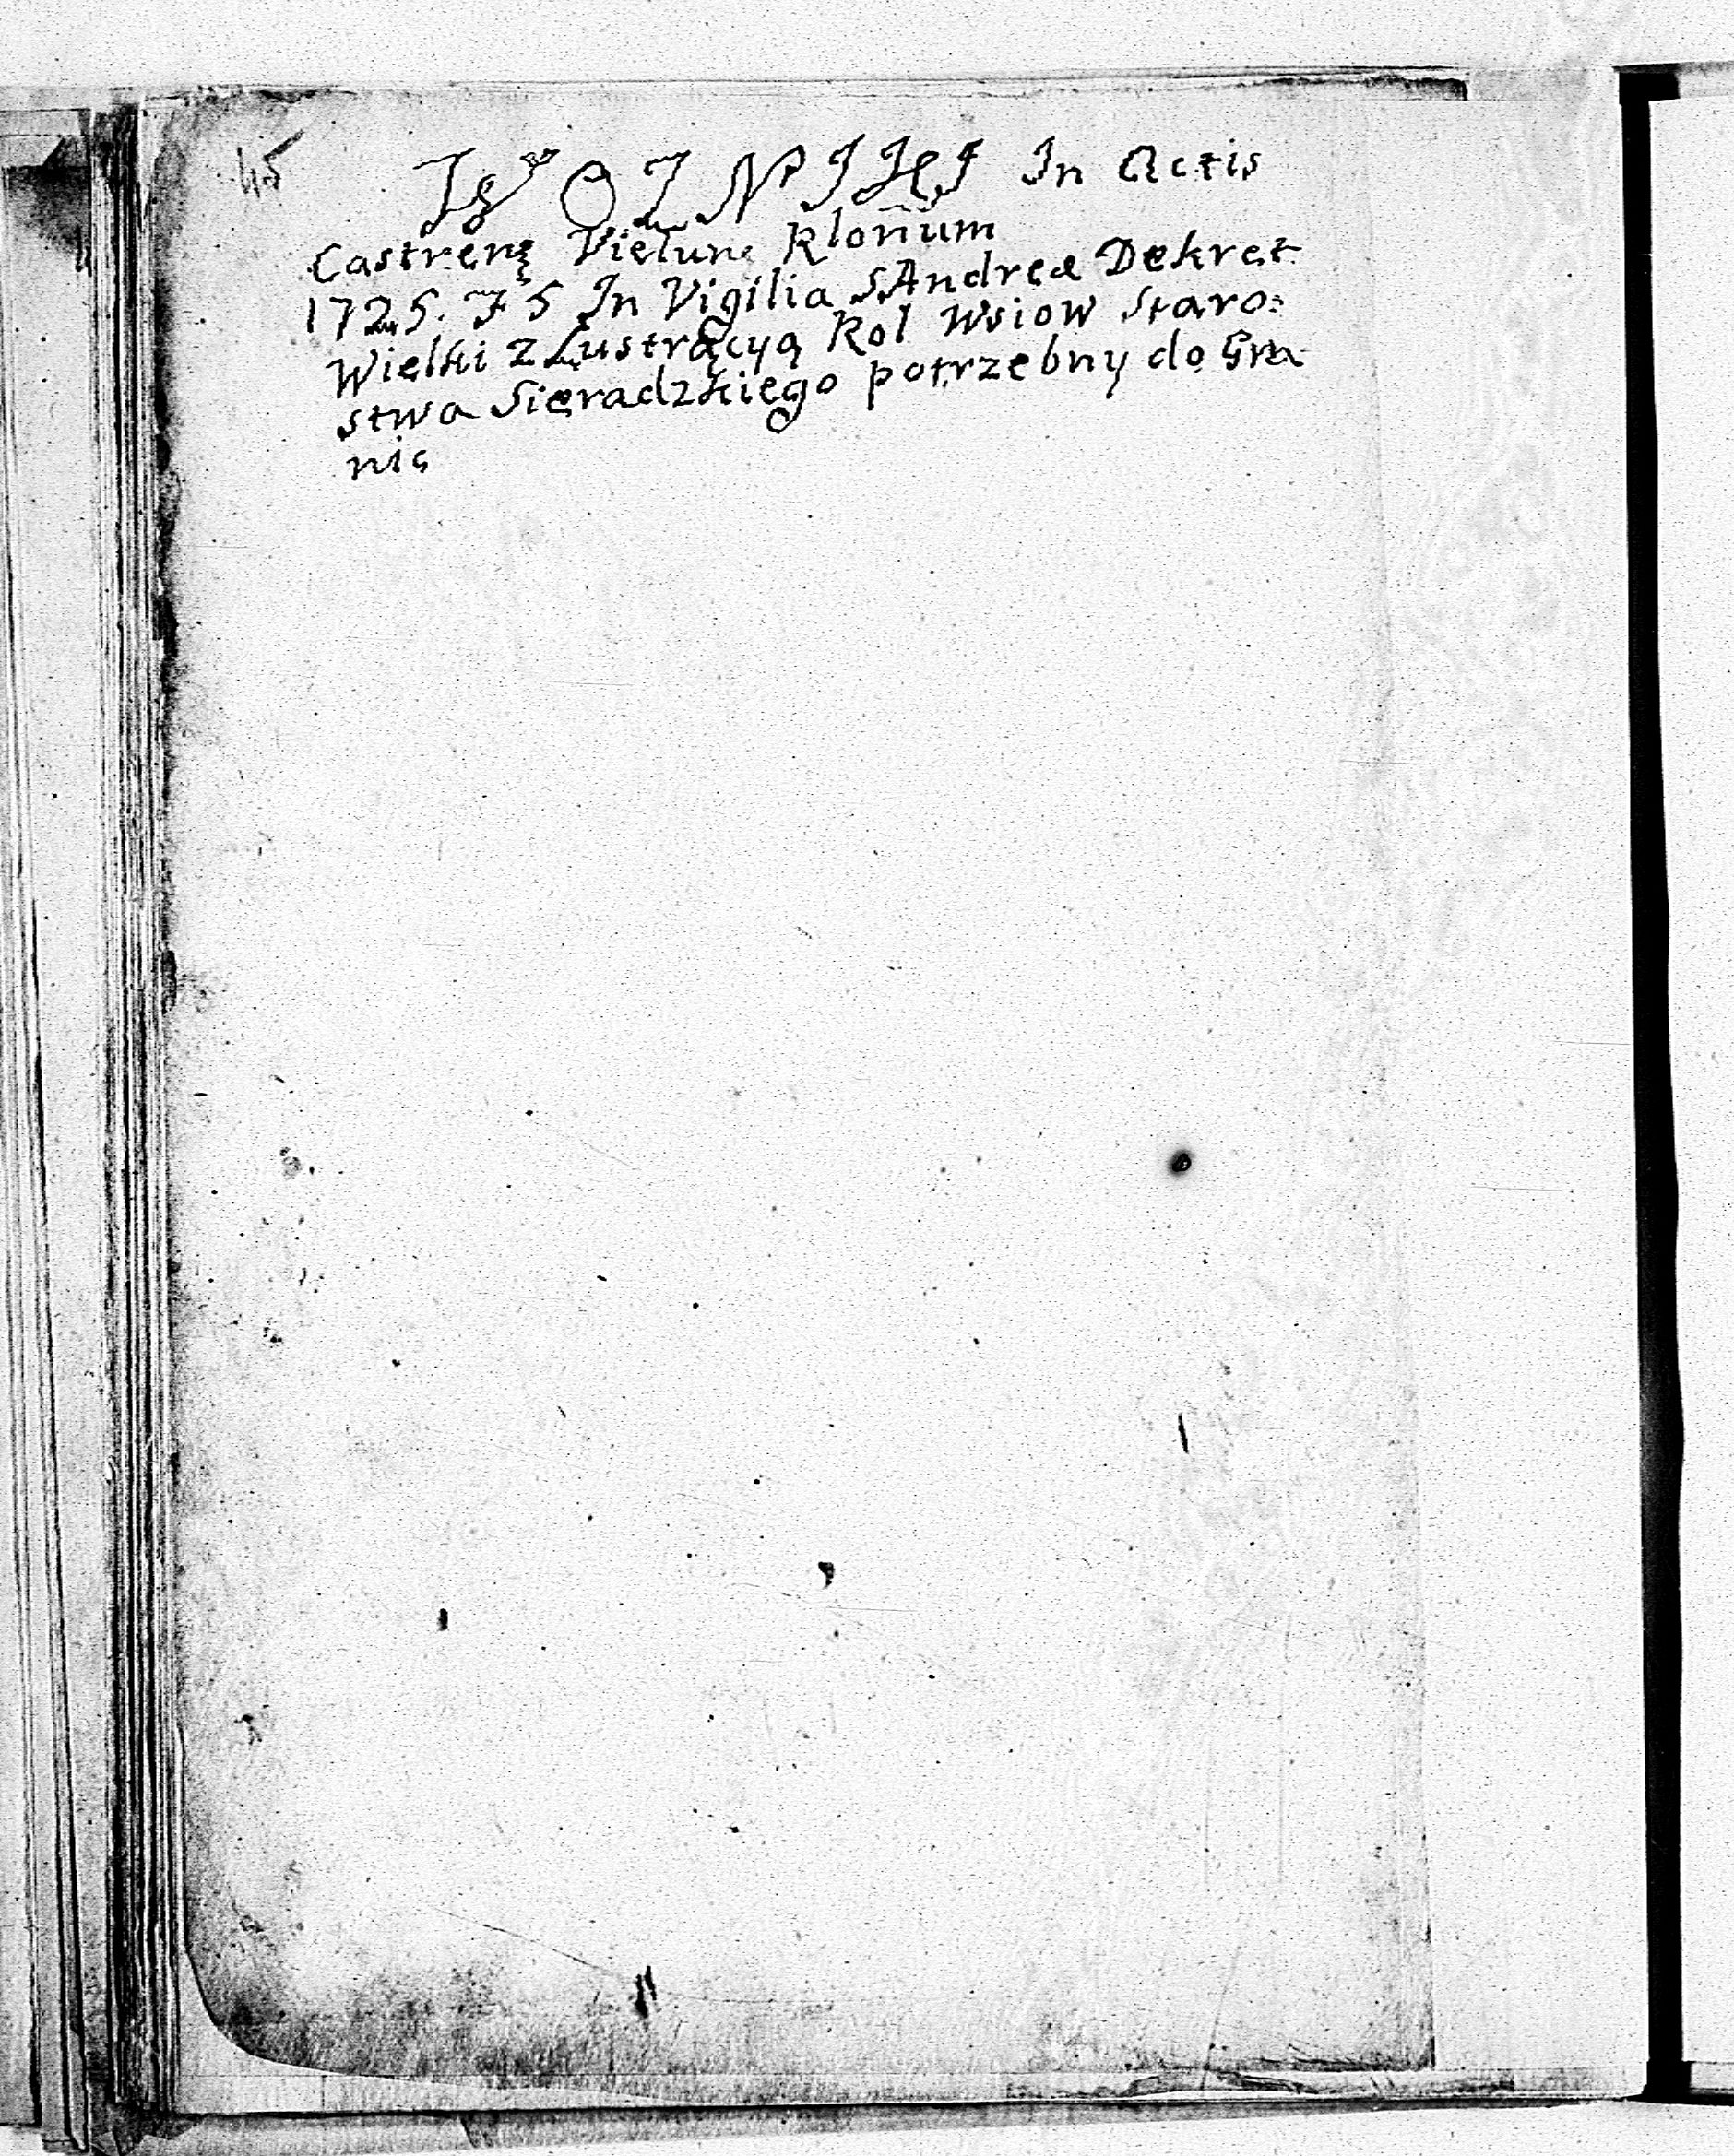 45
WOZNIKI In Actis
Castrenę Vielun: Rlonum
1725. F 5 In Vigilia S Andreæ Dekret
Wielki z Lustrącyą Rol Wsiow Staro:
stwa Sieradzkiego potrzebny do Gra
nic